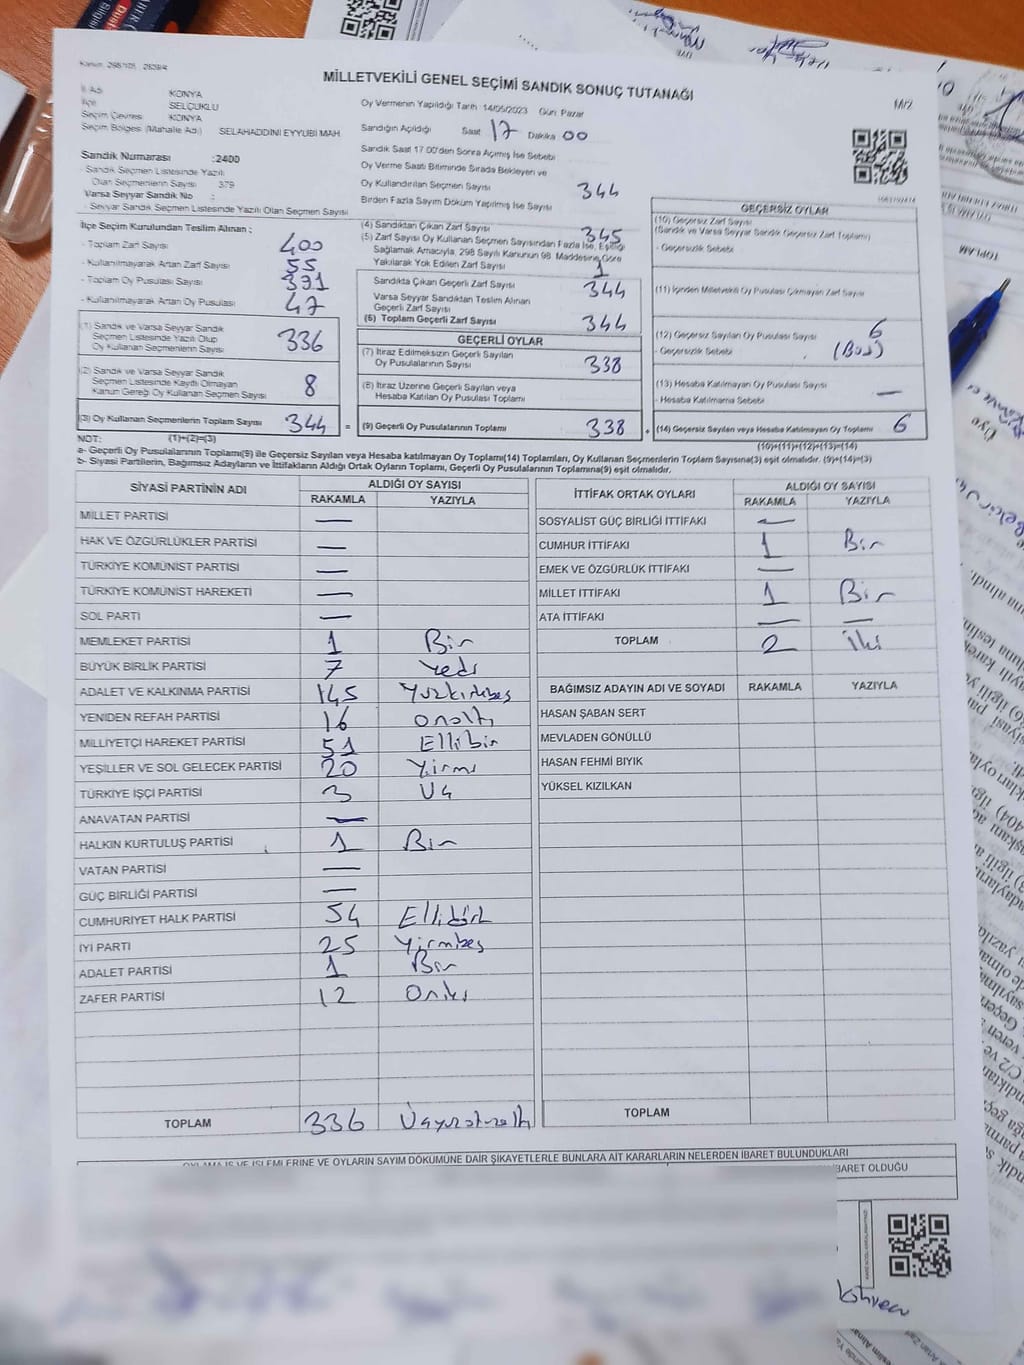 MİLLETVEKİLİ GENEL SEÇİMİ SANDIK SONUÇ TUTANAĞI
M/2
İl Adı KONYA
İlçe SELÇUKLU
Seçim Çevresi KONYA
Seçim Bölgesi (Mahalle Adı) SELAHADDİNİ EYYUBİ MAH
Sandık Numarası :2400
- Sandık Seçmen Listesinde Yazılı
Olan Seçmenlerin Sayısı 379
Varsa Seyyar Sandık No :
- Seyyar Sandık Seçmen Listesinde Yazılı Olan Seçmen Sayısı
Oy Vermenin Yapıldığı Tarih 14/05/2023 Gün Pazar
Sandığın Açıldığı Saat 17 Dakika 00
Sandık Saat 17.00'den Sonra Açılmış İse Sebebi
Oy Verme Saati Bitiminde Sırada Bekleyen ve
Oy Kullandırılan Seçmen Sayısı 344
Birden Fazla Sayım Döküm Yapılmış İse Sayısı
İlçe Seçim Kurulundan Teslim Alınan ;
- Toplam Zarf Sayısı 400
- Kullanılmayarak Artan Zarf Sayısı 55
- Toplam Oy Pusulası Sayısı 391
- Kullanılmayarak Artan Oy Pusulası 47
(1) Sandık ve Varsa Seyyar Sandık
Seçmen Listesinde Yazılı Olup
Oy Kullanan Seçmenlerin Sayısı 336
(2) Sandık ve Varsa Seyyar Sandık
Seçmen Listesinde Kaydı Olmayan
Kanun Gereği Oy Kullanan Seçmen Sayısı 8
(3) Oy Kullanan Seçmenlerin Toplam Sayısı 344 =
(4) Sandıktan Çıkan Zarf Sayısı 345
(5) Zarf Sayısı Oy Kullanan Seçmen Sayısından Fazla İse, Eşitliği
Sağlamak Amacıyla, 298 Sayılı Kanunun 98. Maddesine Göre
Yakılarak Yok Edilen Zarf Sayısı 1
Sandıkta Çıkan Geçerli Zarf Sayısı 344
Varsa Seyyar Sandıktan Teslim Alınan
Geçerli Zarf Sayısı
(6) Toplam Geçerli Zarf Sayısı 344
GEÇERLİ OYLAR
(7) İtiraz Edilmeksizin Geçerli Sayılan
Oy Pusulalarının Sayısı 338
(8) İtiraz Üzerine Geçerli Sayılan veya
Hesaba Katılan Oy Pusulası Toplamı
(9) Geçerli Oy Pusulalarının Toplamı 338 +
GEÇERSİZ OYLAR
(10) Geçersiz Zarf Sayısı
(Sandık ve Varsa Seyyar Sandık Geçersiz Zarf Toplamı)
- Geçersizlik Sebebi
(11) İçinden Milletvekili Oy Pusulası Çıkmayan Zarf Sayısı
(12) Geçersiz Sayılan Oy Pusulası Sayısı 6
- Geçersizlik Sebebi (Boş)
(13) Hesaba Katılmayan Oy Pusulası Sayısı —
- Hesaba Katılmama Sebebi
(14) Geçersiz Sayılan veya Hesaba Katılmayan Oy Toplamı 6
NOT: (1)+(2)=(3) (10)+(11)+(12)+(13)=(14)
a- Geçerli Oy Pusulalarının Toplamı(9) ile Geçersiz Sayılan veya Hesaba katılmayan Oy Toplamı(14) Toplamları, Oy Kullanan Seçmenlerin Toplam Sayısına(3) eşit olmalıdır. (9)+(14)=(3)
b- Siyasi Partilerin, Bağımsız Adayların ve İttifakların Aldığı Ortak Oyların Toplamı, Geçerli Oy Pusulalarının Toplamına(9) eşit olmalıdır.
SİYASİ PARTİNİN ADI ALDIĞI OY SAYISI
RAKAMLA YAZIYLA
MİLLET PARTİSİ —
HAK VE ÖZGÜRLÜKLER PARTİSİ —
TÜRKİYE KOMÜNİST PARTİSİ —
TÜRKİYE KOMÜNİST HAREKETİ —
SOL PARTİ —
MEMLEKET PARTİSİ 1 Bir
BÜYÜK BİRLİK PARTİSİ 7 Yedi
ADALET VE KALKINMA PARTİSİ 145 Yüzkırkbeş
YENİDEN REFAH PARTİSİ 16 Onaltı
MİLLİYETÇİ HAREKET PARTİSİ 51 Ellibir
YEŞİLLER VE SOL GELECEK PARTİSİ 20 Yirmi
TÜRKİYE İŞÇİ PARTİSİ 3 Üç
ANAVATAN PARTİSİ —
HALKIN KURTULUŞ PARTİSİ 1 Bir
VATAN PARTİSİ —
GÜÇ BİRLİĞİ PARTİSİ —
CUMHURİYET HALK PARTİSİ 54 Ellidört
İYİ PARTİ 25 Yirmibeş
ADALET PARTİSİ 1 Bir
ZAFER PARTİSİ 12 Oniki
TOPLAM 336 Üçyüzotuzaltı
İTTİFAK ORTAK OYLARI ALDIĞI OY SAYISI
RAKAMLA YAZIYLA
SOSYALİST GÜÇ BİRLİĞİ İTTİFAKI —
CUMHUR İTTİFAKI 1 Bir
EMEK VE ÖZGÜRLÜK İTTİFAKI —
MİLLET İTTİFAKI 1 Bir
ATA İTTİFAKI — —
TOPLAM 2 İki
BAĞIMSIZ ADAYIN ADI VE SOYADI RAKAMLA YAZIYLA
HASAN ŞABAN SERT
MEVLADEN GÖNÜLLÜ
HASAN FEHMİ BIYIK
YÜKSEL KIZILKAN
TOPLAM
OYLAMA İŞ VE İŞLEMLERİNE VE OYLARIN SAYIM DÖKÜMÜNE DAİR ŞİKAYETLERLE BUNLARA AİT KARARLARIN NELERDEN İBARET BULUNDUKLARI
İBARET OLDUĞU